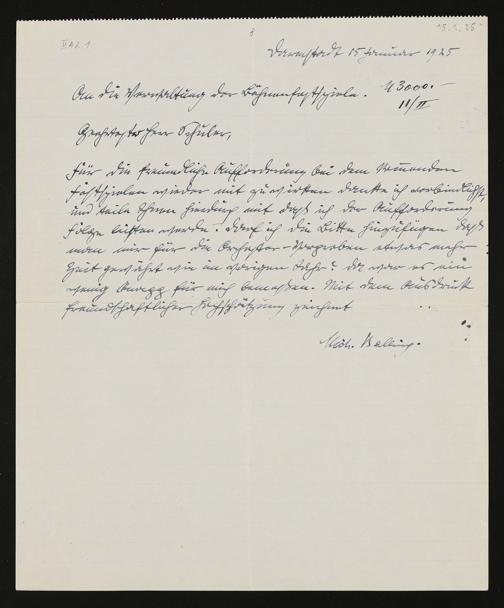 15.1.25
II A 2 1
8
Darmstadt 15 Januar 1925
An die Verwaltung der Bühnenfestspiele. M 3000.–
11/II
Geehrtester Herr Schuler,
Für die freundliche Aufforderung bei dem kommenden
Festspielen wieder mit zu wirken danke ich verbindlichst,
und teile Ihnen hierdurch mit daß ich der Aufforderung
Folge leisten werde. Darf ich die Bitte hinzufügen daß
man mir für die Orchester-Vorproben etwas mehr
Zeit gewährt wie im vorigen Jahr? Da war es ein
wenig knapp für mich bemessen. Mit dem Ausdruck
freundschaftlicher Hochschätzung zeichnet
Mich. Balling.